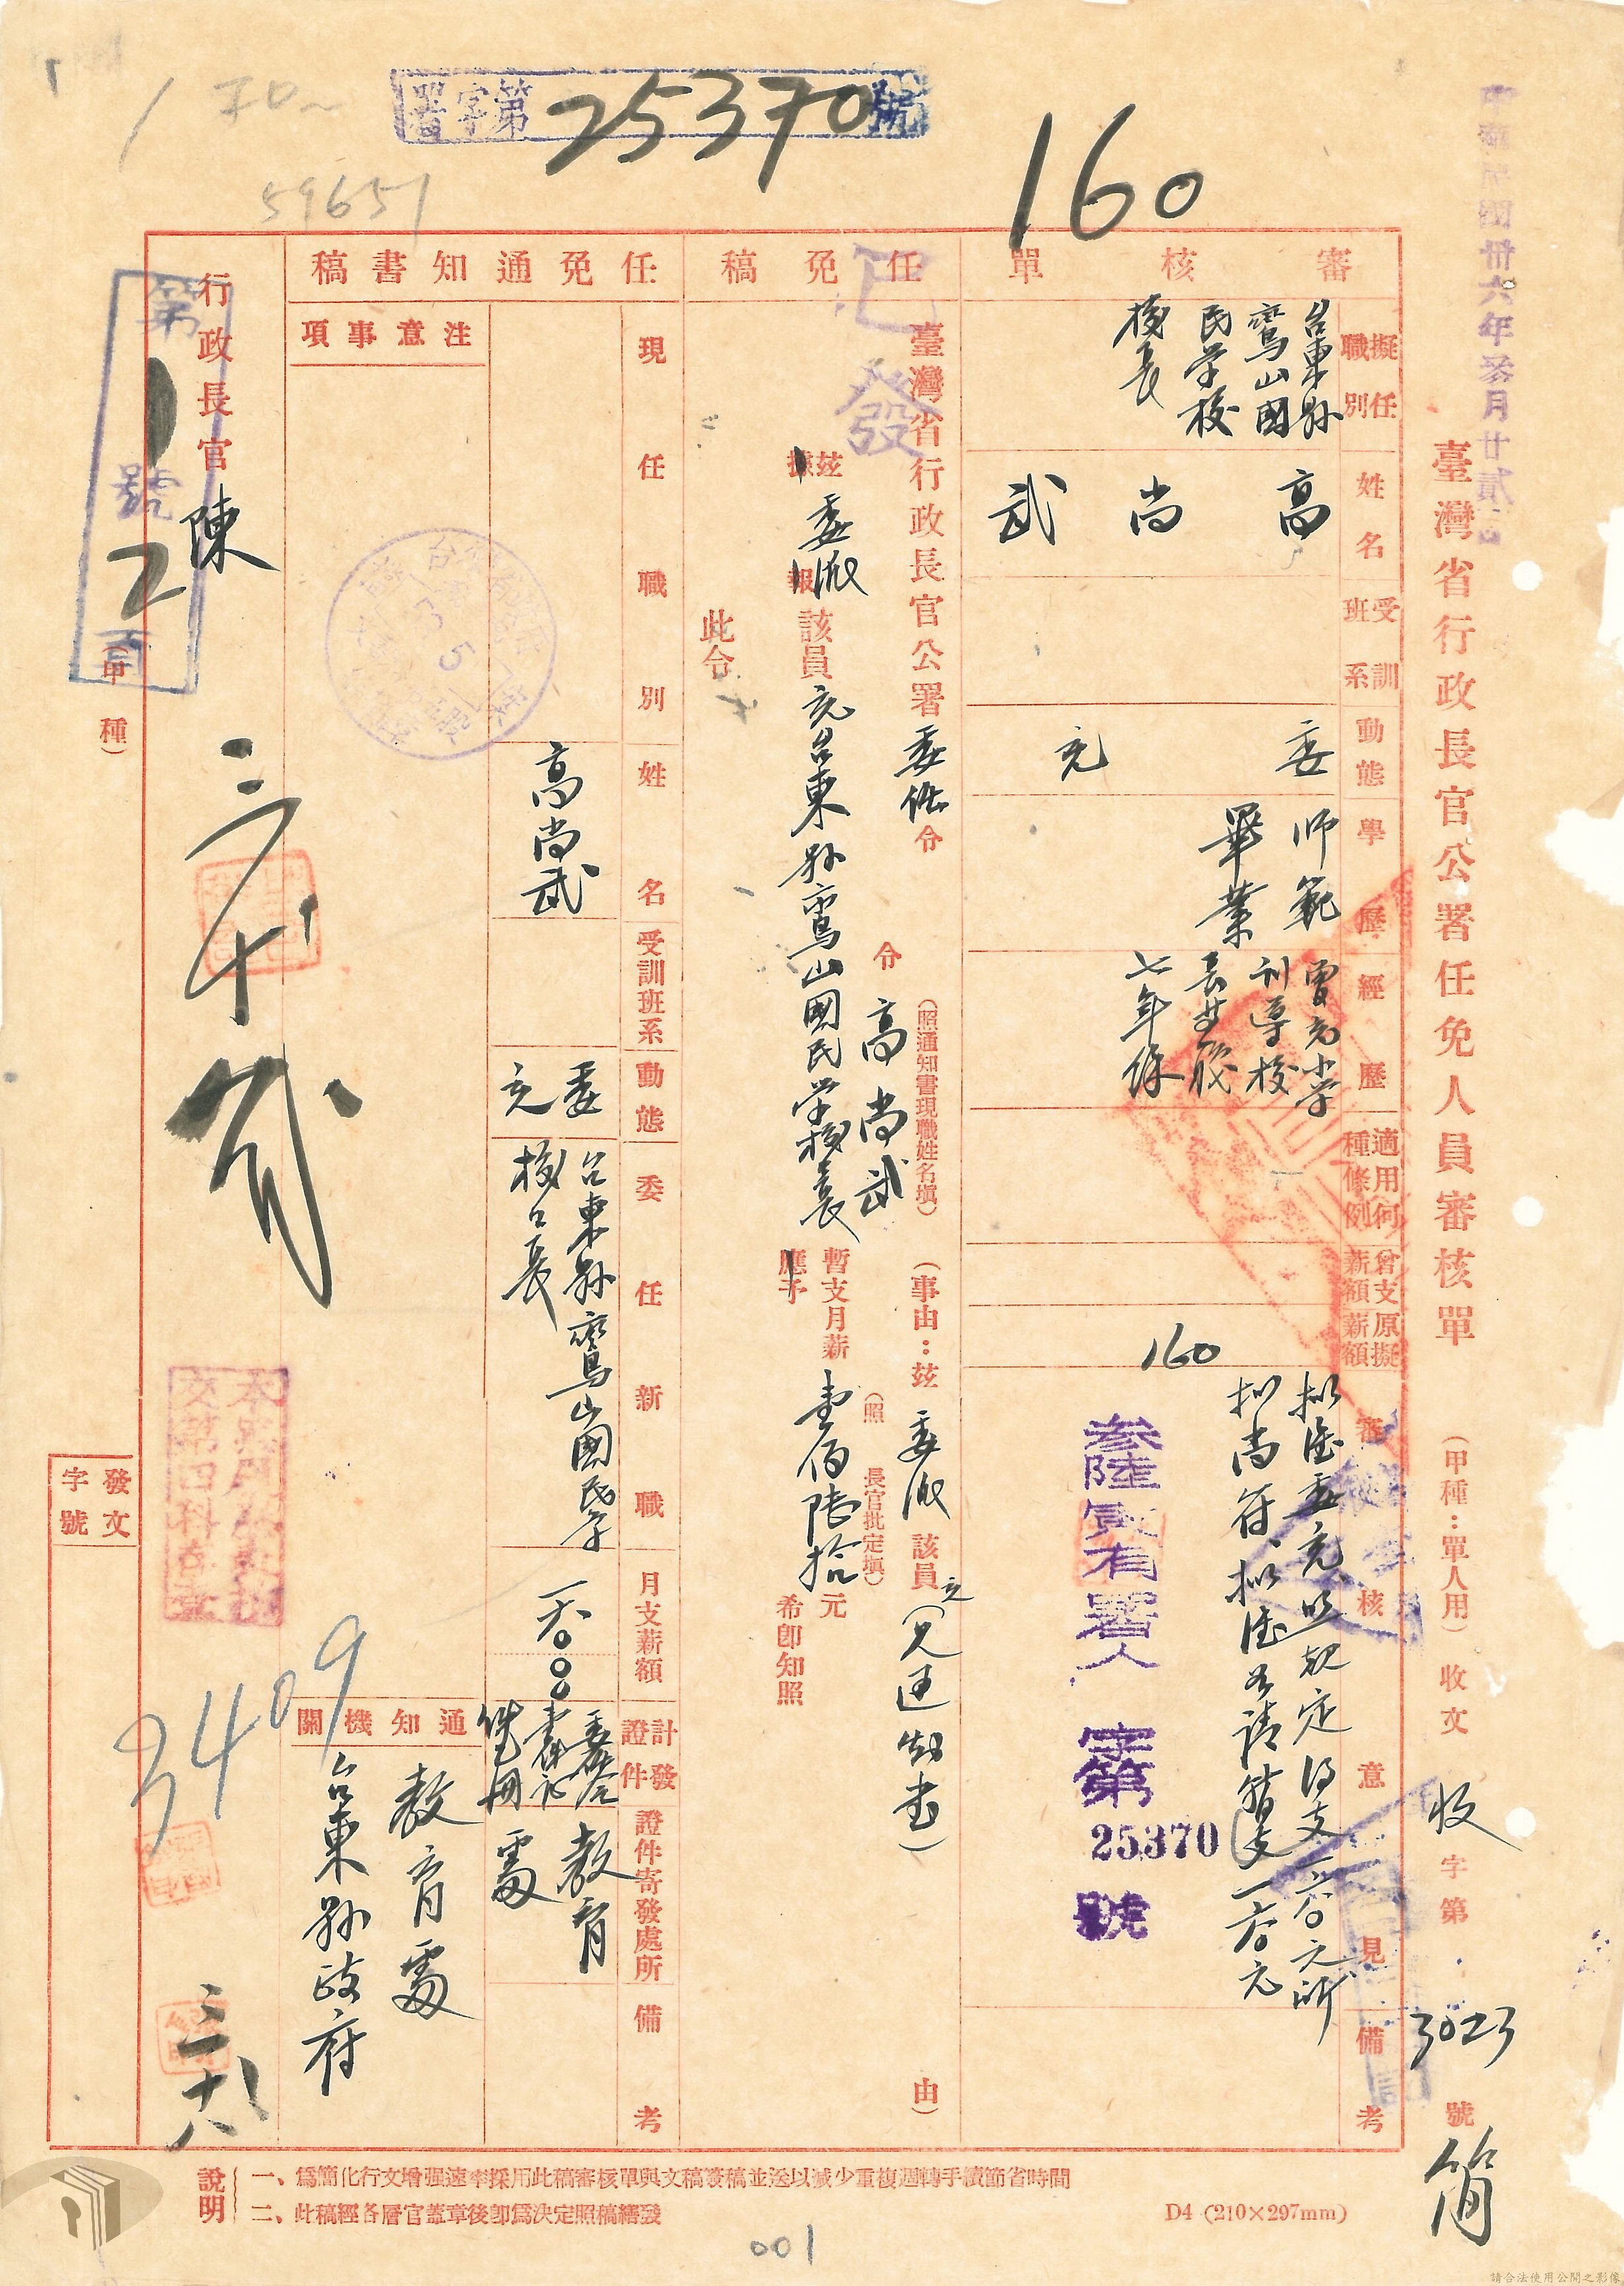 中華民國卅六年叁月廿貳日
臺灣省行政長官公署任免人員審核單
(甲種:單人用)
收文 收字第3023號
簡
署字第25370號
160
70
59651
審核單
擬任職別
台東縣
鸞山國
民学校
校長
姓名
高尚武
受訓班系
動態
委充
學歷
師範
畢業
經歷
曾充小学
訓導校
長等职
七年餘
適用何種條例
曾支薪額
原擬薪額
160
審核意見
擬准委充照規定得支一六〇元所
擬尚符擬准 請暫支一六〇元
叁陸寅有署人字第25370號
備考
任免稿
已發
臺灣省行政長官公署委派令
令高尚武
(照通知書現職姓名填)
(事由:茲委派該員充(見通知書)由)
茲據委派報該員充台東縣鸞山國民学校校長
應予
暫支月薪壹佰陸拾元
(照長官批定填)
希卽知照
此令
任免通知書稿
現任職別
姓名
高尚武
受訓班系
動態
委充
委任新職
台東縣鸞山國民学
校校長
月支薪額
一六〇.〇〇
計發證件
證件寄發處所
教育處
備考
注意事項
通知機關
教育處
台東縣政府
行政長官 陳
第1號2頁
(甲種)
發文
字號
3409
說明
一、爲簡化行文增强速率採用此稿審核單與文稿簽稿並送以減少重複週轉手續節省時間
二、此稿經各層官蓋章後卽爲決定照稿繕發
D4 (210×297mm)
001
請合法使用公開之影像